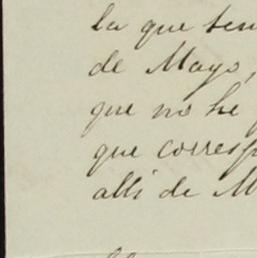 la que ten
de Mayo,
que no he
que corresp
allí de M